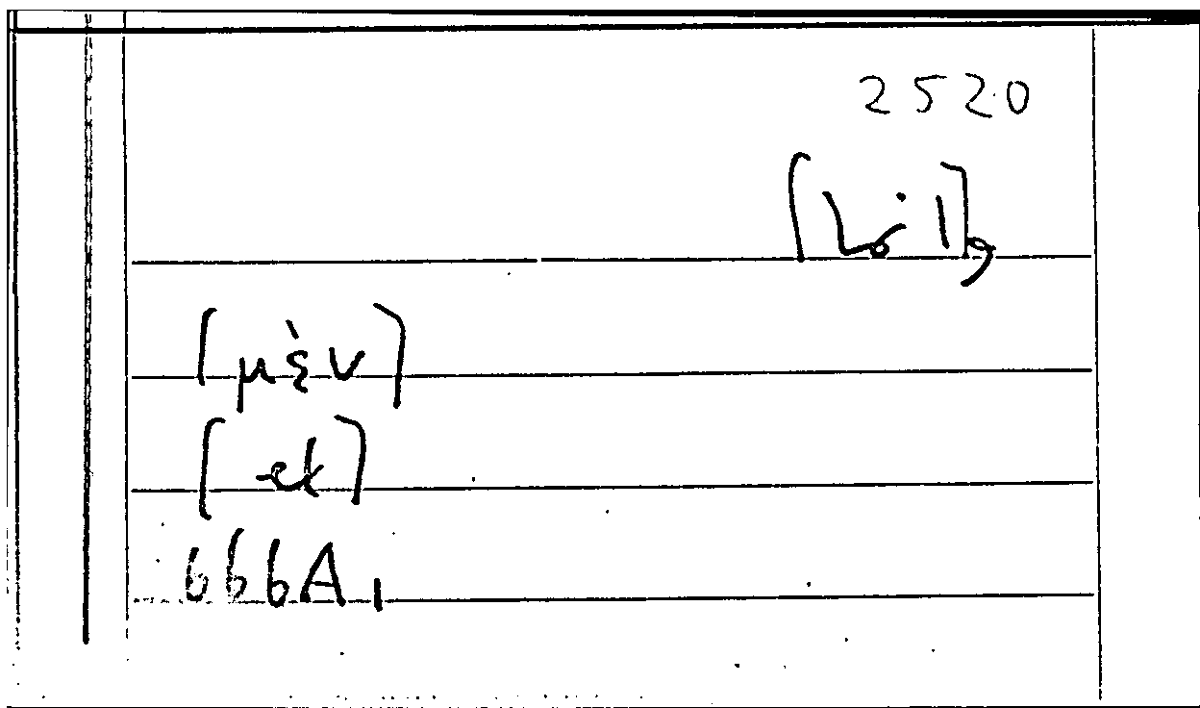 2520
[μὲν]
[ek]
666A1